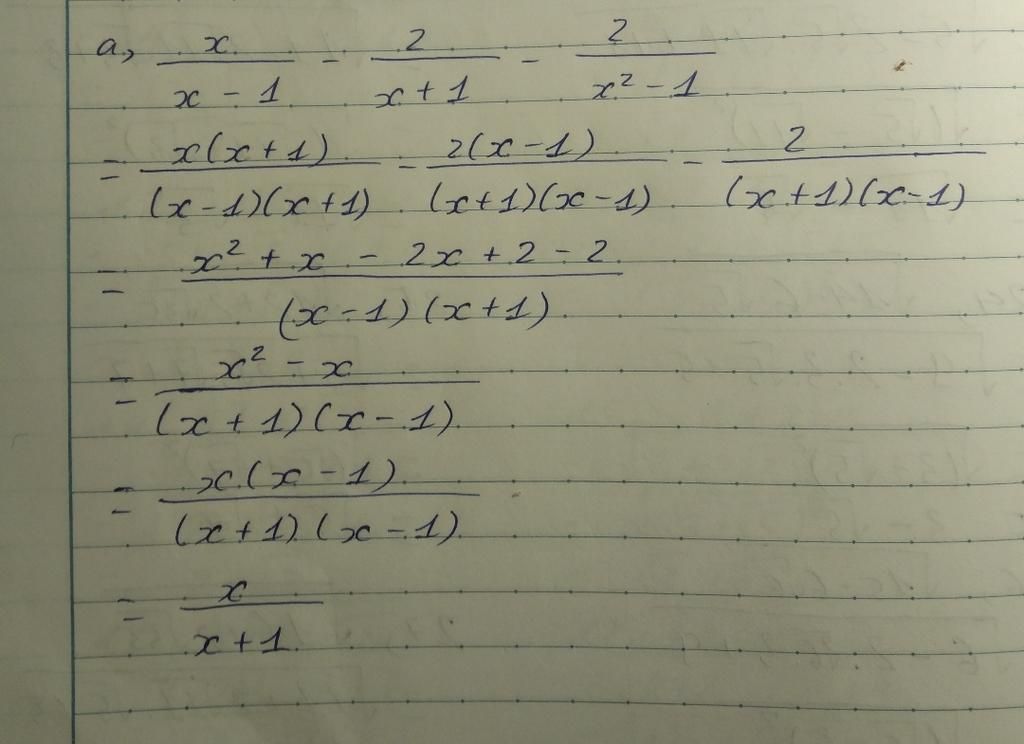 a, x/(x - 1) - 2/(x + 1) - 2/(x² - 1)
= x(x + 1)/((x - 1)(x + 1)) - 2(x - 1)/((x + 1)(x - 1)) - 2/((x + 1)(x - 1))
= (x² + x - 2x + 2 - 2)/((x - 1)(x + 1))
= (x² - x)/((x + 1)(x - 1))
= x(x - 1)/((x + 1)(x - 1))
= x/(x + 1)